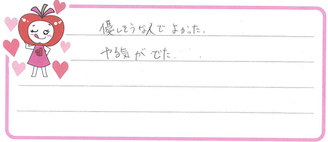 優しそうな人でよかった.
やる気がでた.....